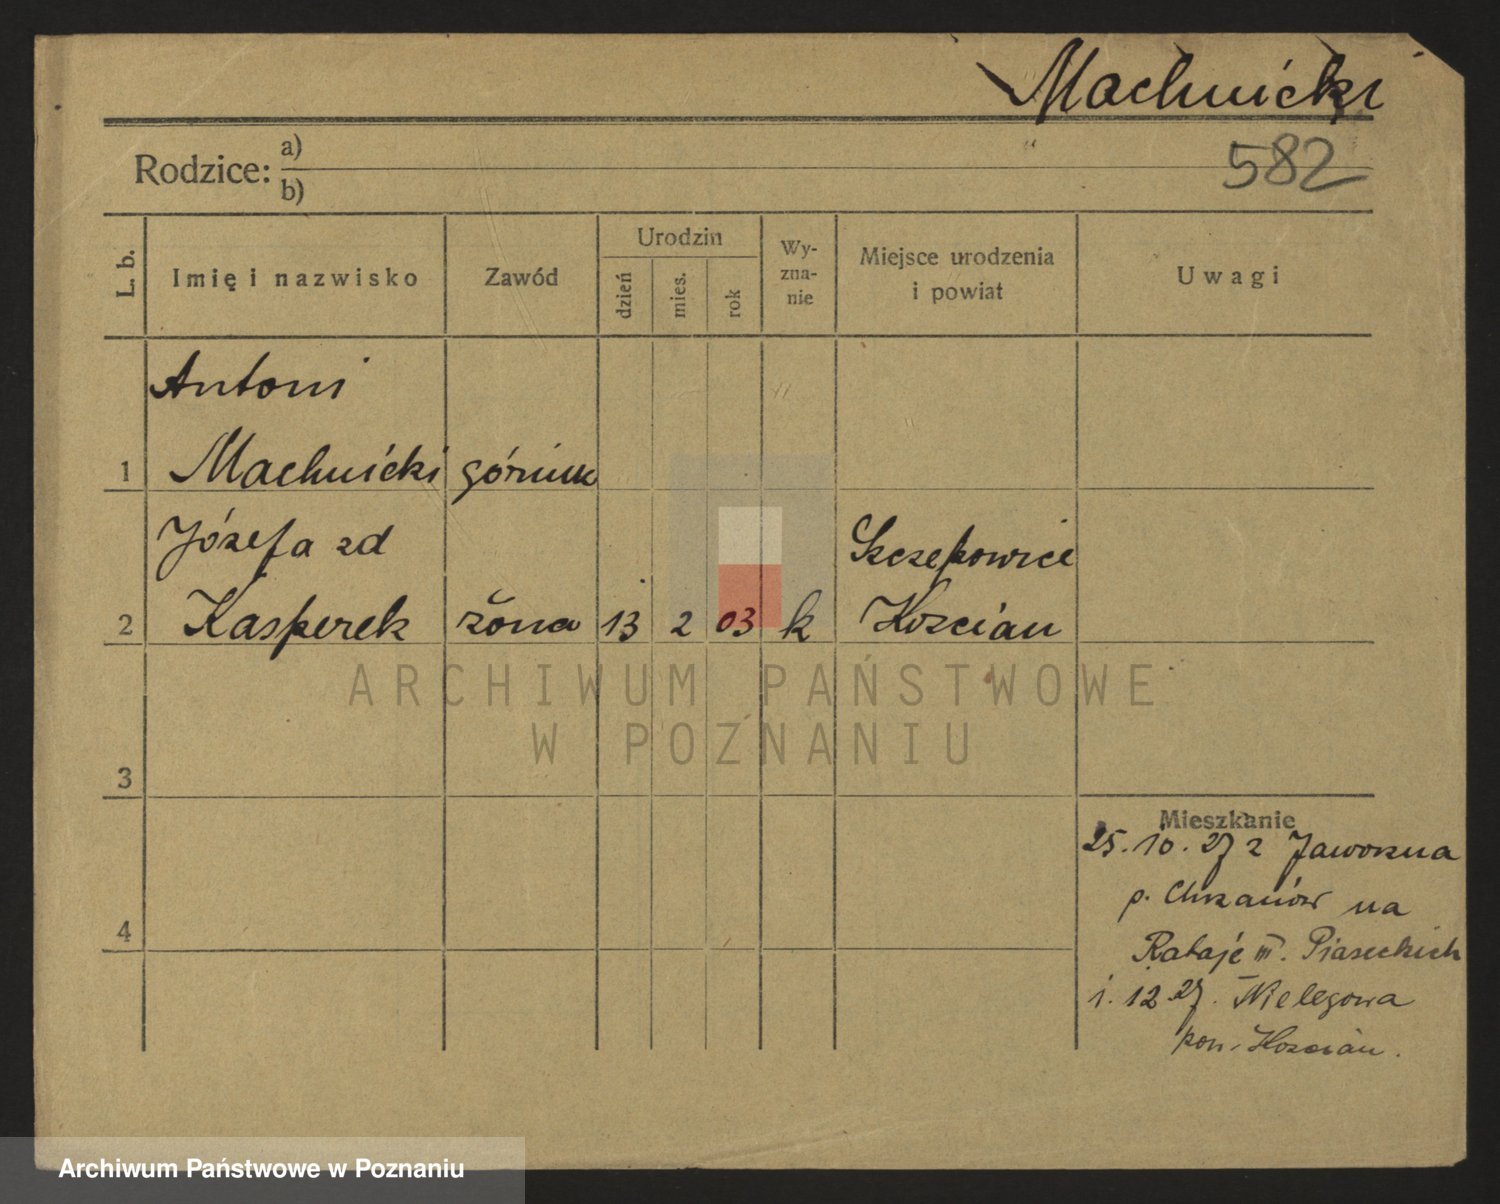 Machnicki
582
Rodzice: a)
b)
L. b.
Imię i nazwisko
Zawód
Urodzin
dzień
mies.
rok
Wy-
zna-
nie
Miejsce urodzenia
i powiat
Uwagi
Antoni
1 Machnicki górnik
Józefa zd
Szczepowice
2 Kasperek żona 13 2 03 k Kościan
ARCHIWUM PAŃSTWOWE
W POZNANIU
3
Mieszkanie
25. 10. 27 z Jaworzna
p. Chrzanów na
4
Rataje m. Piaseckich
1. 12. 27. Nielegowa
pow. Kościan.
Archiwum Państwowe w Poznaniu